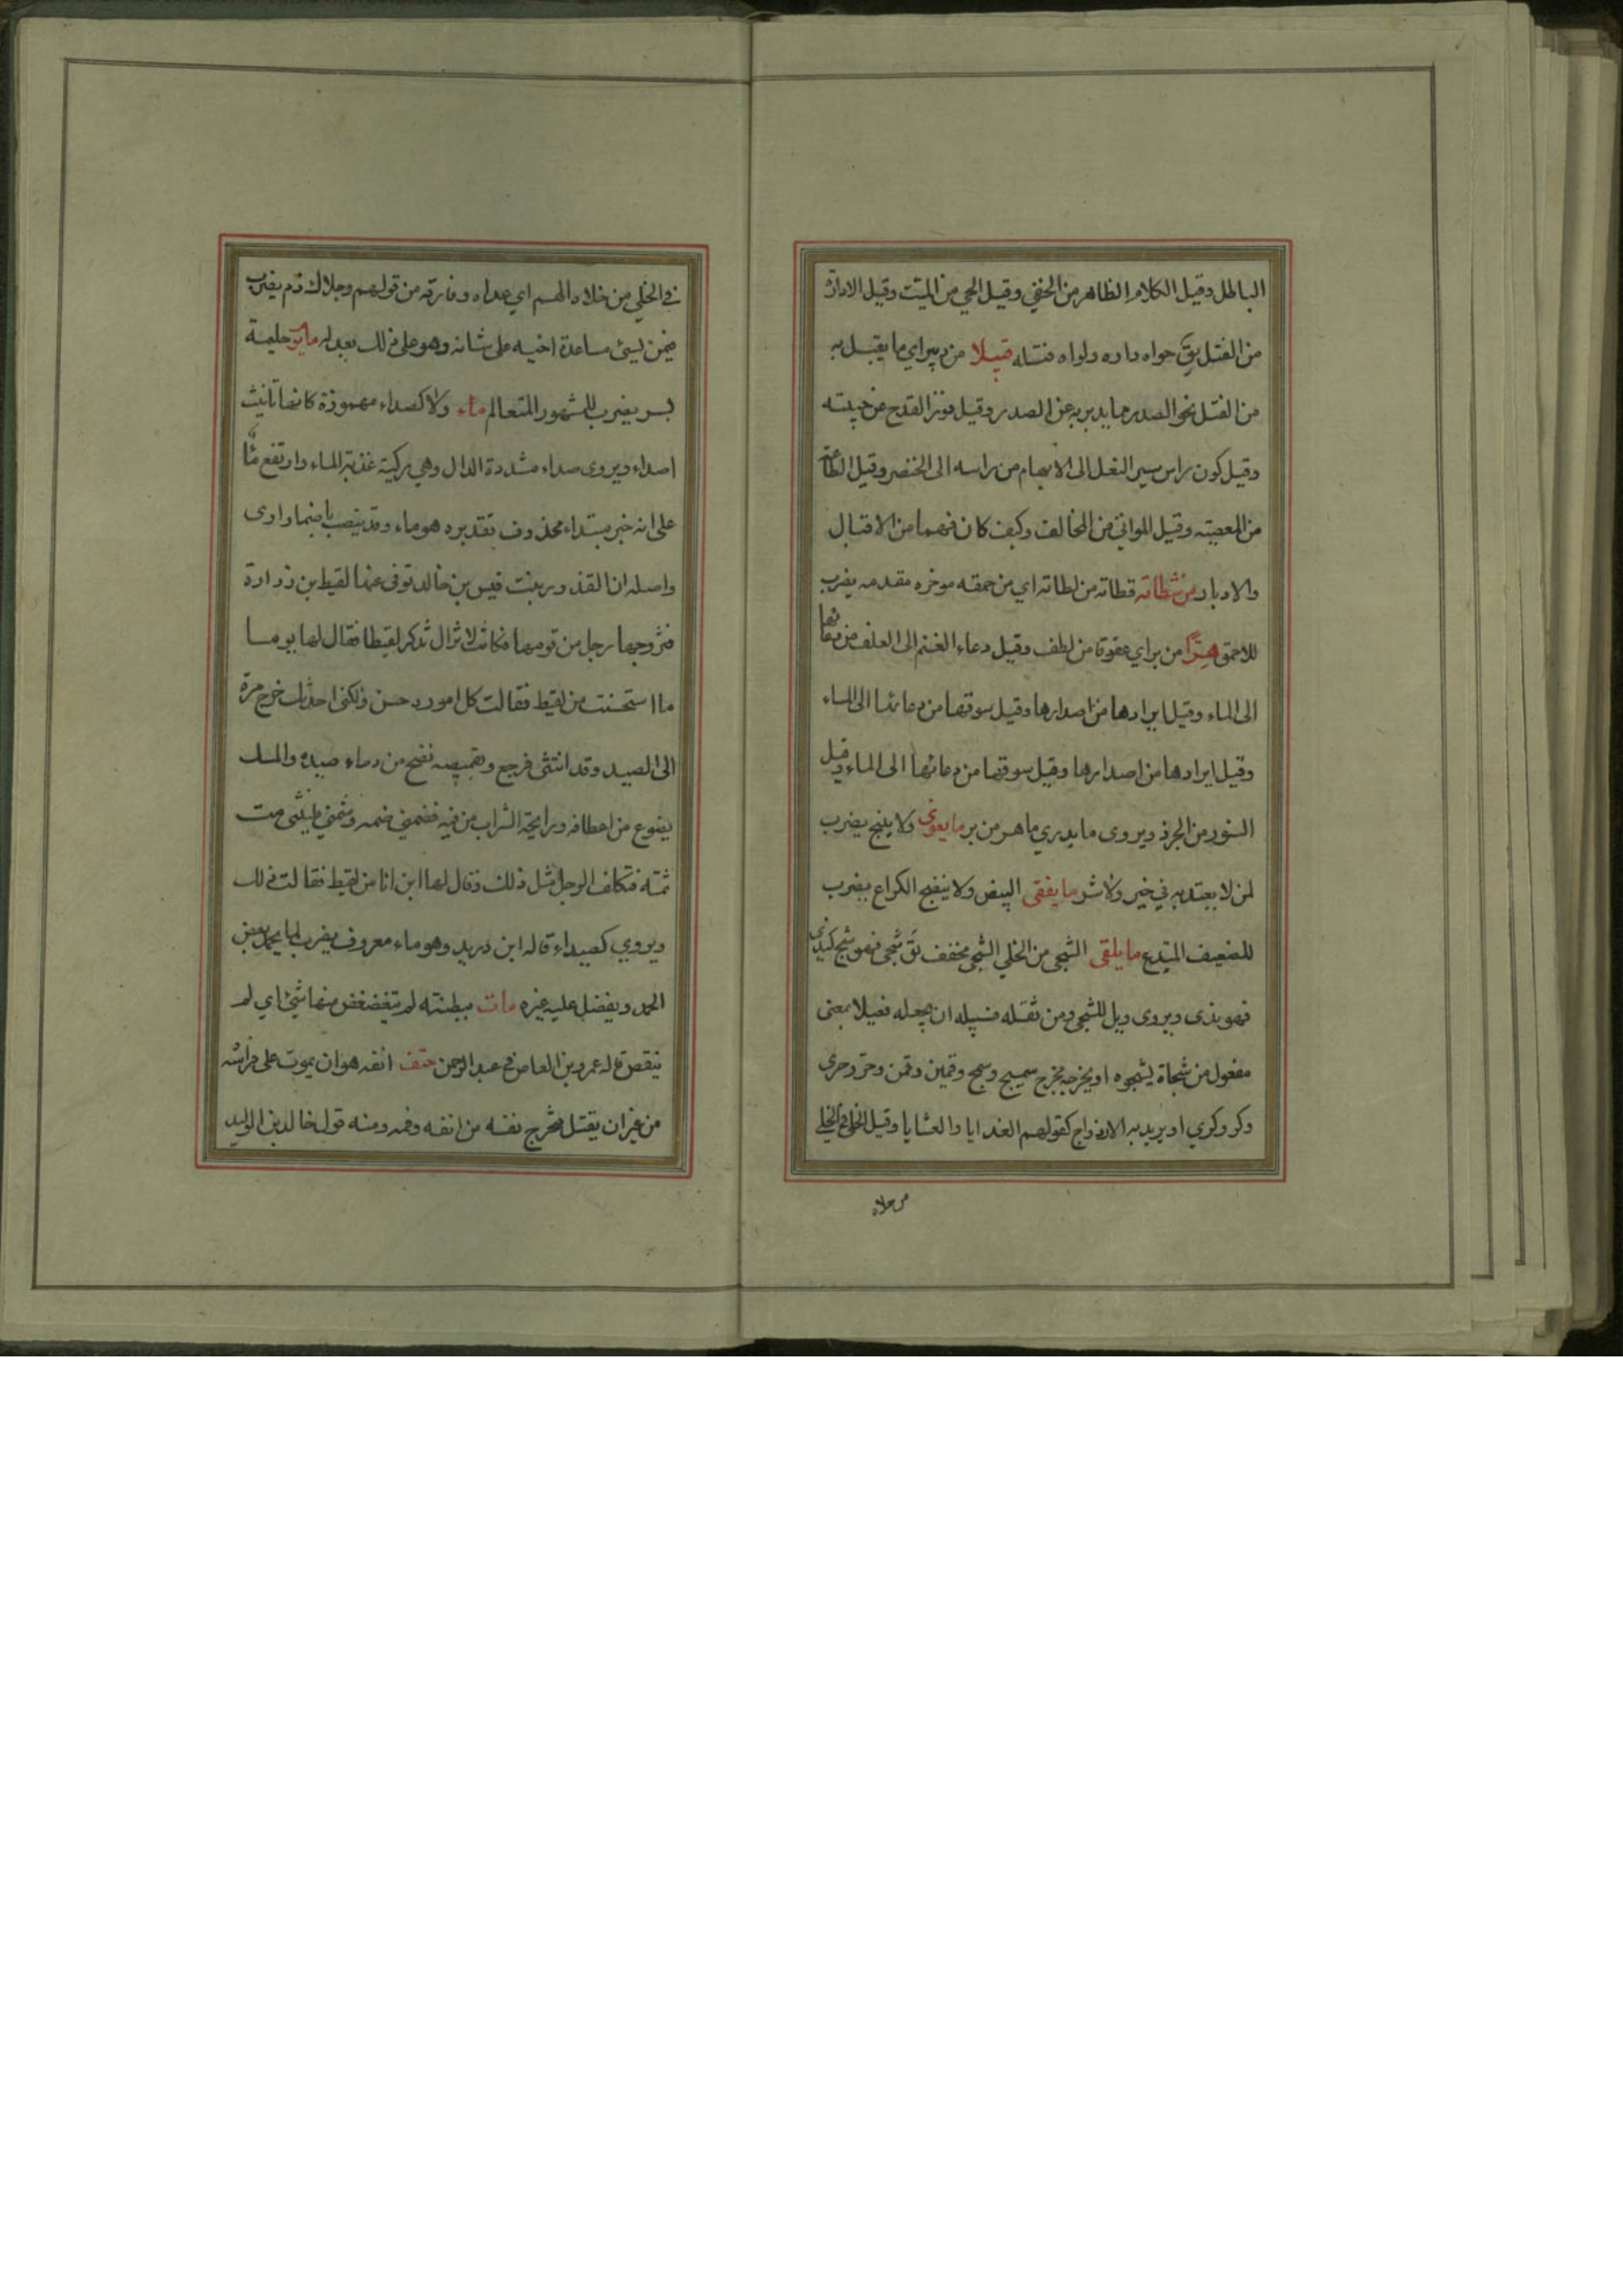 الباطل وقيل الكلام الظاهر من الخفي وقيل الحي من الميت وقيل الادارة
من الفتل يق حواه داره ولواه فتله قبيلا من دبير اي ما يقبل به
من الفتل نحو الصدر مما يدبر به عن الصدر وقيل فوز القدح عن خيبته
وقيل كون راس سير النعل الى الابهام من راسه الى الخنصر وقيل الطاعة
من المعصيته وقيل المواتي من المخالف وكيف كان فهما من الاقبال
والادبار من شطاته قطاته من لطاته اي من حمقه موخره مقدمه يضرب
للاحمق هرا من بر اي عقوقا من لطف وقيل دعاء الغنم الى العلف من دعائها
الى الماء وقيل ايرادها من اصدارها وقيل سوقها من دعائها الى الماء
وقيل ايرادها من اصدارها وقيل سوقها من دعائها الى الماء وقيل
السنور من الجرذ ويروى ما يدري ما هر من بر ما يعوى ولا ينبح يضرب
لمن لا يعتد به في خير ولا شر ما يفقى البيض ولا ينضج الكراع يضرب
للضعيف ما يلقى الشجى من الخلي الشجى مخفف يق شجى فهو شج
فهو ندى ويروى ويل للشجى ومن ثقله فسبيله ان يجعله فعيلا بمعنى
مفعول من شجاه يشجوه او يخرجه مخرج سميج وسمج وقمين وقمن وحر وحرى
وكر وكري او يريد به الازدواج كقولهم الغدايا والعشايا وقيل
من خلاه
في الخلي من خلاه الهم اي عداه وفارقه من قولهم وخلاك ذم يضرب
فيمن يسئ مساعدة اخيه على شانه وهو على ذلك يعدله ما يوم حليمة
بسر يضرب للمشهور المتعالم ماء ولا كصداء مهموزة كانها تانيث
اصداء ويروى صداء مشددة الدال وهي ركية عذبة الماء وارتفع ماء
على انه خبر مبتداء محذوف تقديره هو ماء وقد ينصب باضمار ارى
واصله ان القذور بنت قيس بن خالد توفى عنها لقيط بن زرارة
فتزوجها رجل من قومها فكانت لا تزال تذكر لقيطا فقال لها يوما
ما استحسنت من لقيط فقالت كل اموره حسن ولكني احدثك خرج مرة
الى الصيد وقد انتشى فرجع وبقميصه نضح من دماء صيده والمسك
يضوع من اعطافه ورايحة الشراب من فيه فضمني ضمه وشمني شمة فليتني مت
ثمة فتكلف الرجل مثل ذلك وقال لها اين انا من لقيط فقالت ذلك
ويروي كصيداء قاله ابن دريد وهو ماء معروف يضرب لما يحمد بعض
الحمد ويفضل عليه غيره مات ببطنته لم يتغضغض منها شئ اي لم
ينقص قاله عمرو بن العاص في عبد الرحمن حتف انفه هو ان يموت على فراشه
من غير ان يقتل فتخرج نفسه من انفه وفمه ومنه قول خالد بن الوليد